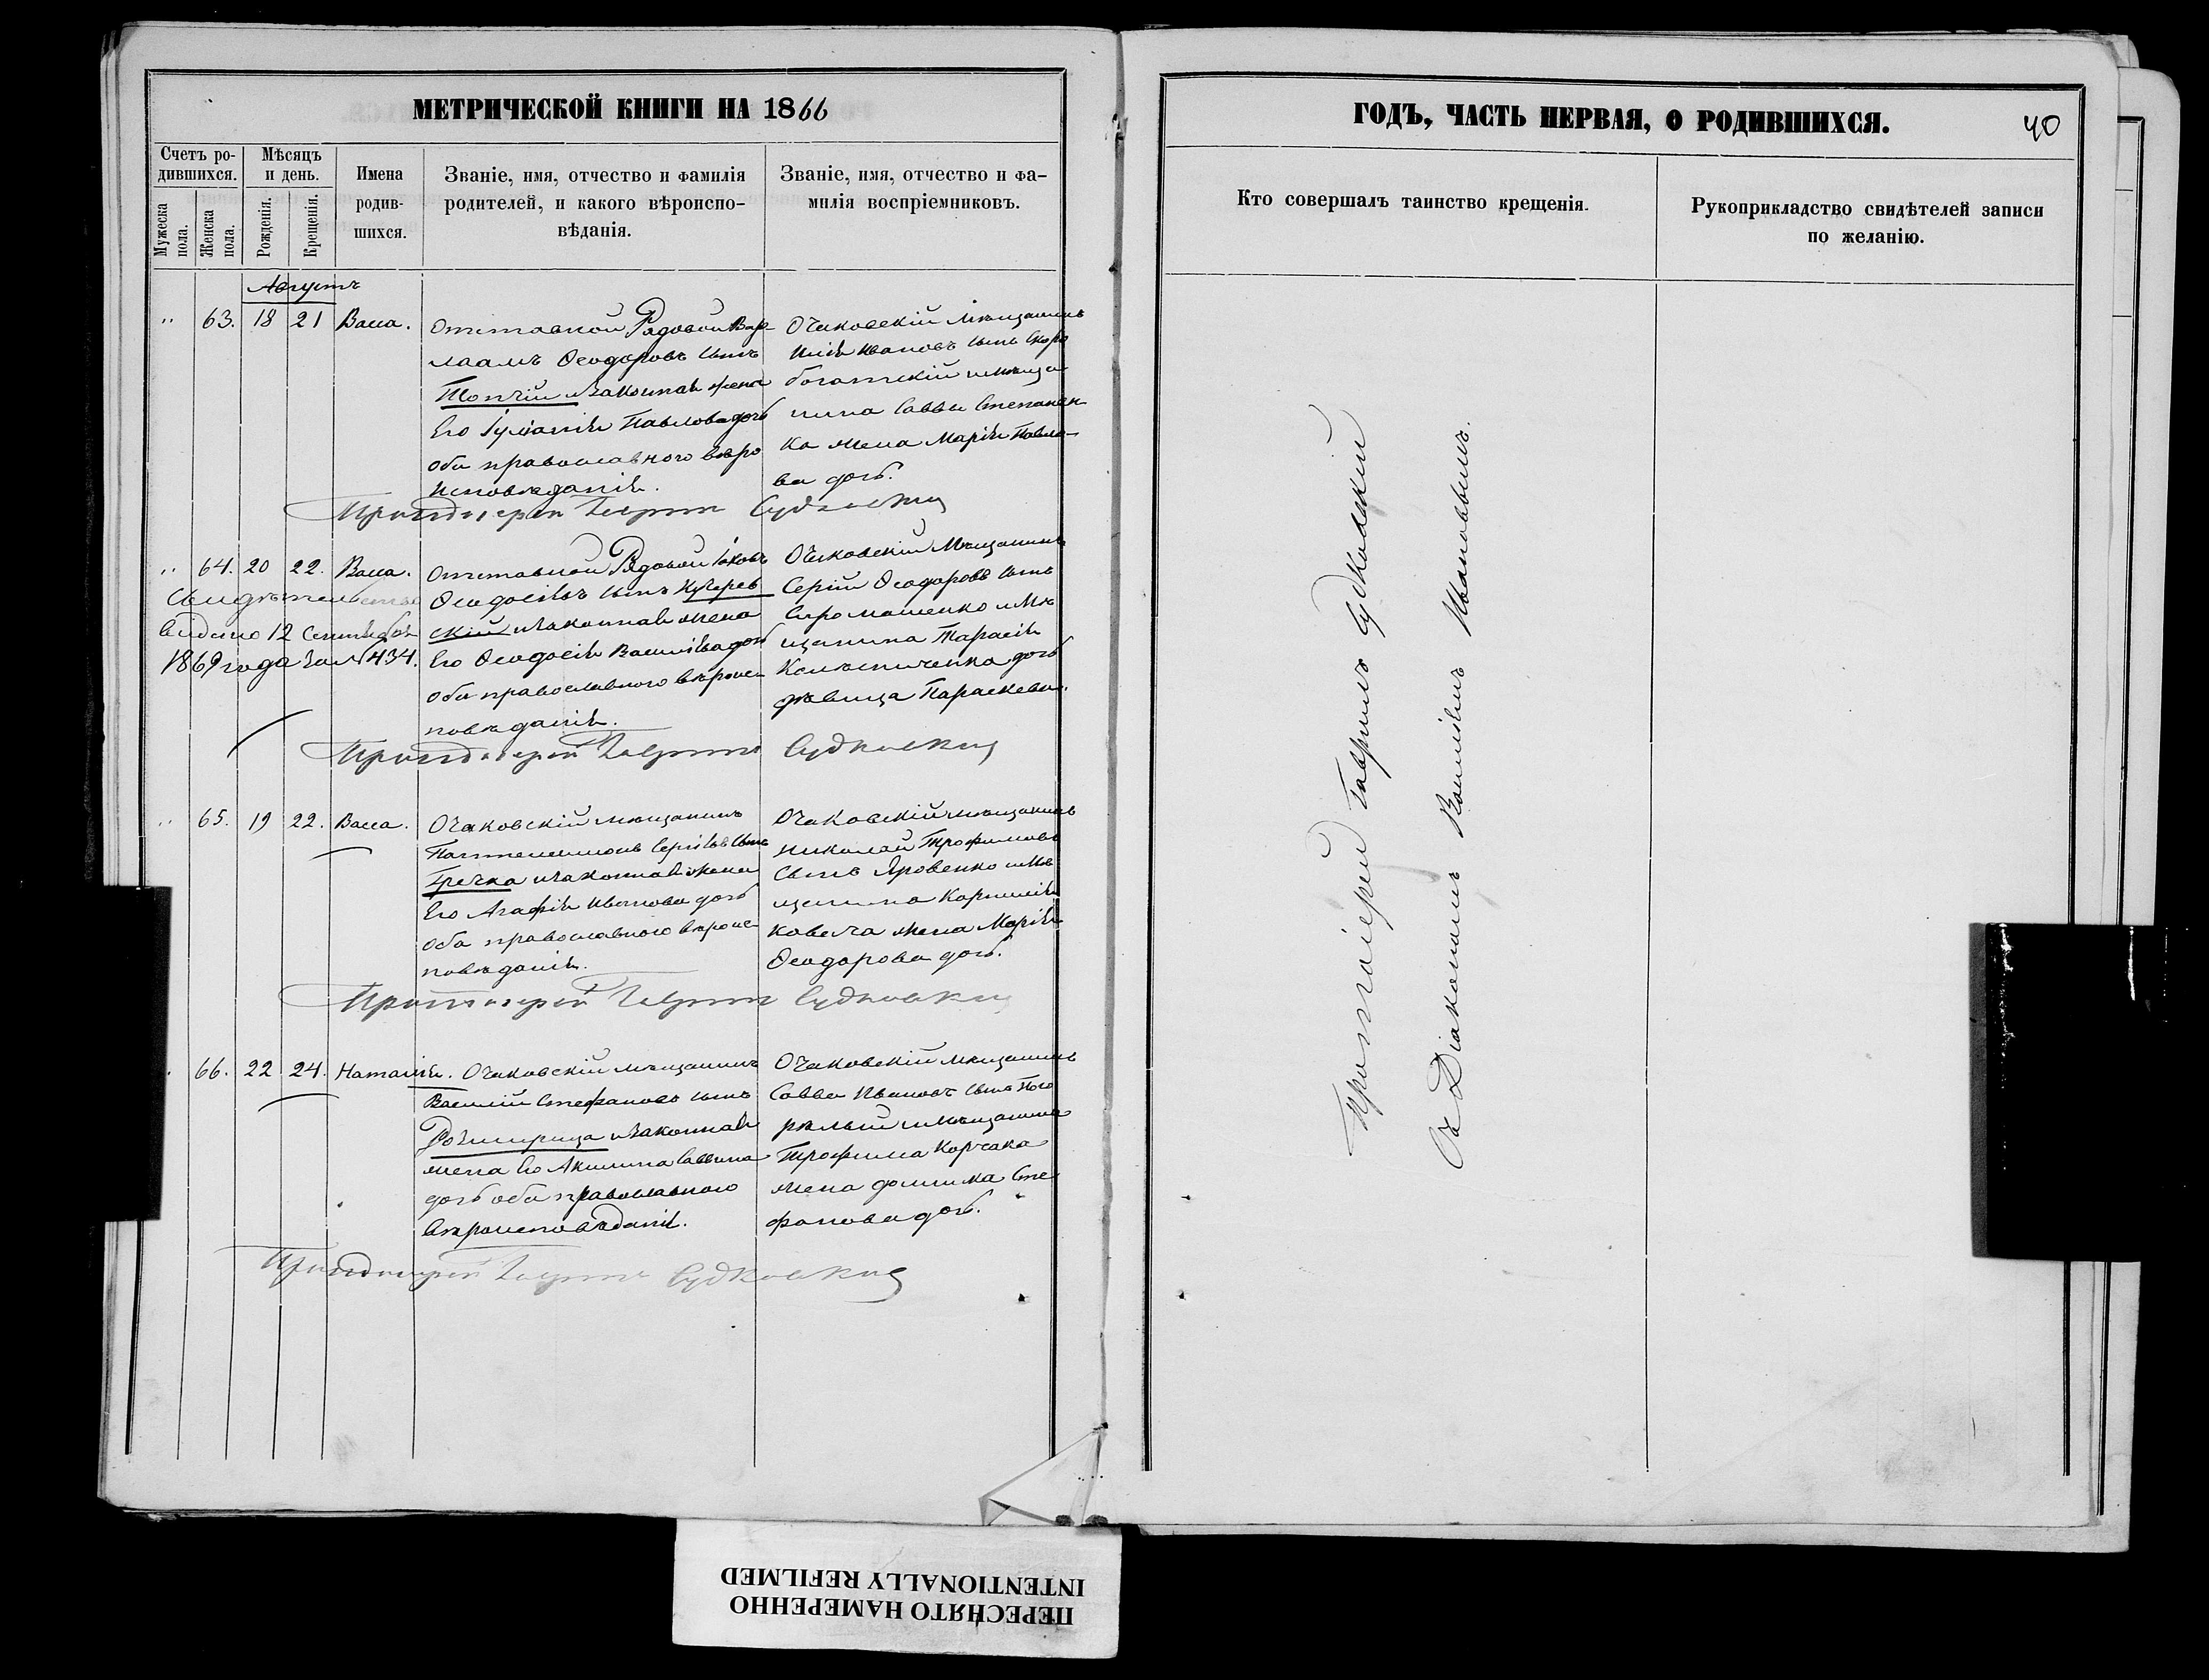 МЕТРИЧЕСКОЙ КНИГИ НА 1866
Счетъ ро-
дившихся.
Мужеска
пола.
Женска
пола.
Мѣсяцъ
и день.
Рожденія.
Крещенія.
Имена
родив-
шихся.
Званіе, имя, отчество и фамилія
родителей, и какого вѣроиспо-
вѣданія.
Званіе, имя, отчество и фа-
милія воспріемниковъ.
Августъ
" 63. 18 21 Васса.
Отставной Рядовой Вар-
лаамъ Ѳеодоровъ сынъ
Топчій и законная жена
Его Іуліанія Павлова дочь
оба православного вѣро
исповѣданія.
Очаковскій мѣщанинъ
Илія Ивановъ сынъ Скоро
богатскій и мѣща
нина Саввы Степанен-
ка жена Марія Павло-
ва дочь.
Протоіерей Гавріилъ Судковскій
" 64. 20 22. Васса.
Свидѣтельство
видано 12 Сентября
1869 года за № 434.
Отставной Рядовой Іаковъ
Ѳеодосіевъ сынъ Кучерев
скій и законная жена
Его Ѳеодосія Василіева дочь
оба православного вѣроис-
повѣданія.
Очаковскій Мѣщанинъ
Сергій Ѳеодоровъ сынъ
Сиромашенко и Мѣ
щанина Тарасія
Колѣсниченка дочь
дѣвица Параскева.
Протоіерей Гавріилъ Судковскій
" 65. 19 22. Васса.
Очаковскій мѣщанинъ
Пантелеимонъ Сергіевъ сынъ
Гречка и законная жена
Его Агафія Иванова дочь
оба православного вѣроис-
повѣданія.
Очаковскій мѣщанинъ
Николай Трофимовъ
сынъ Яровенко и Мѣ
щанина Корнилія
Ковела жена Марія
Ѳеодорова дочь.
Протоіерей Гавріилъ Судковскій
66. 22 24. Наталія.
Очаковскій мѣщанинъ
Василій Стефановъ сынъ
и законная
жена Его Акилина Саввина
дочь оба православного
вѣроисповѣданія.
Очаковскій мѣщанинъ
Савва Ивановъ сынъ Пого
рѣлый и мѣщанина
Трофима Корчака
жена Домника Сте
фанова дочь.
Протоіерей Гавріилъ Судковскій
ГОДЪ, ЧАСТЬ ПЕРВАЯ, О РОДИВШИХСЯ.
40
Кто совершалъ таинство крещенія.
Рукоприкладство свидѣтелей записи
по желанію.
Протоіерей Гавріилъ Судковскій
Съ Діакономъ Василіемъ Ивановымъ.
ПЕРЕСНЯТО НАМЕРЕННО
INTENTIONALLY REFILMED